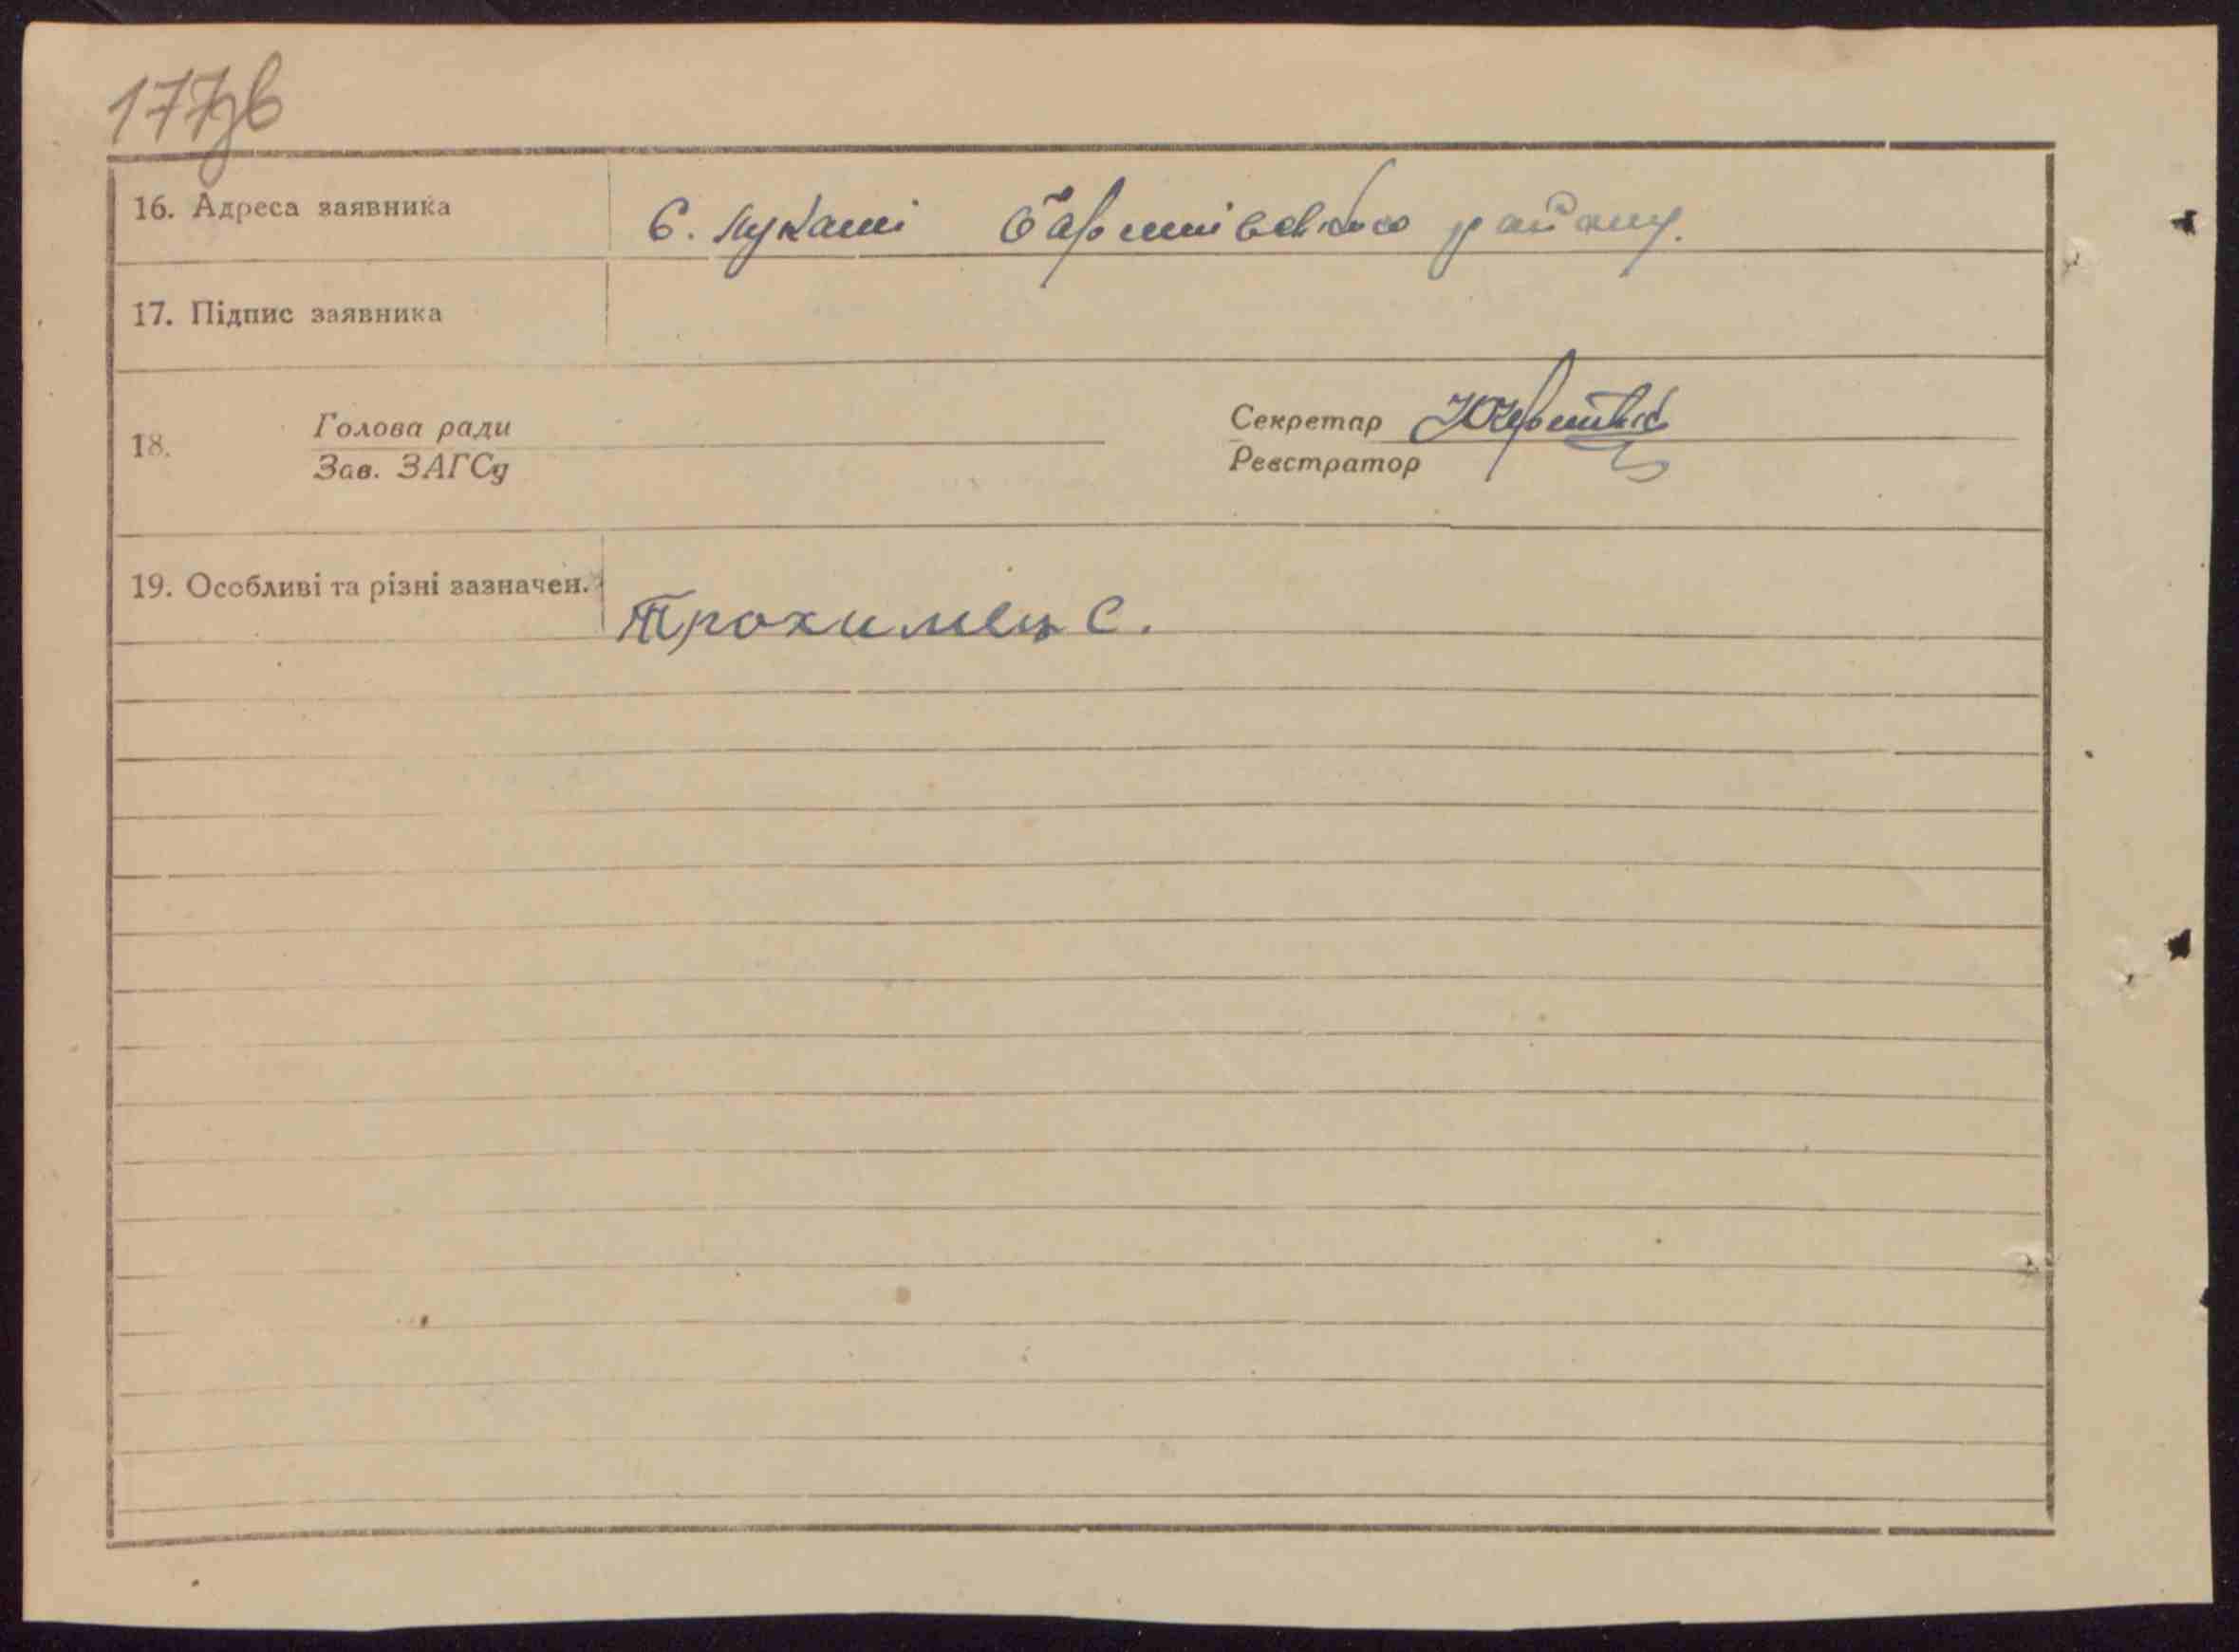 177зв
16. Адреса заявника С. Лукаші Баришівського району.
17. Підпис заявника
18. Голова ради Секретар
Зав. ЗАГСу Реєстратор
19. Особливі та різні зазначен.
Трохимец С.